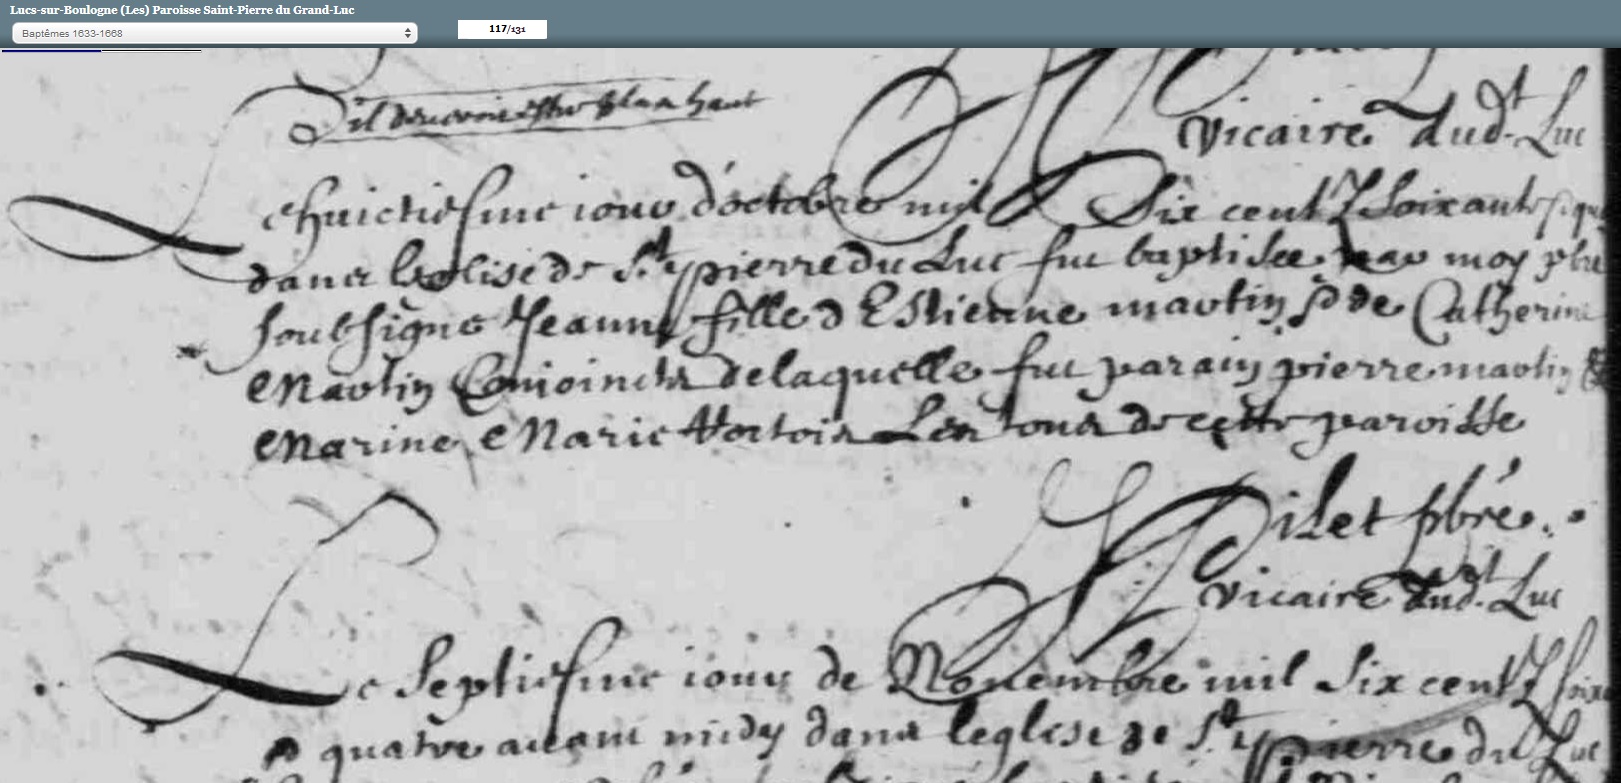 Lucs-sur-Boulogne (Les) Paroisse Saint-Pierre du Grand-Luc
Baptêmes 1633-1668
117/131
vicaire dud.t Luc
Le huictiesme iour d'octobre mil Six centz Soixante
dans l'eglise de St pierre du Luc fut baptisee par moy pbre
soubsigné Jeanne fille d'Estienne martin & de Catherine
Martin Conioincts de laquelle fut parain pierre martin &
Marine Marie tous de cette paroisse
Gilet pbre.
vicaire dud.t Luc
Le septiesme iour de Nouembre mil Six centz soix
quatre auant midy dans l'eglise de St pierre du Luc